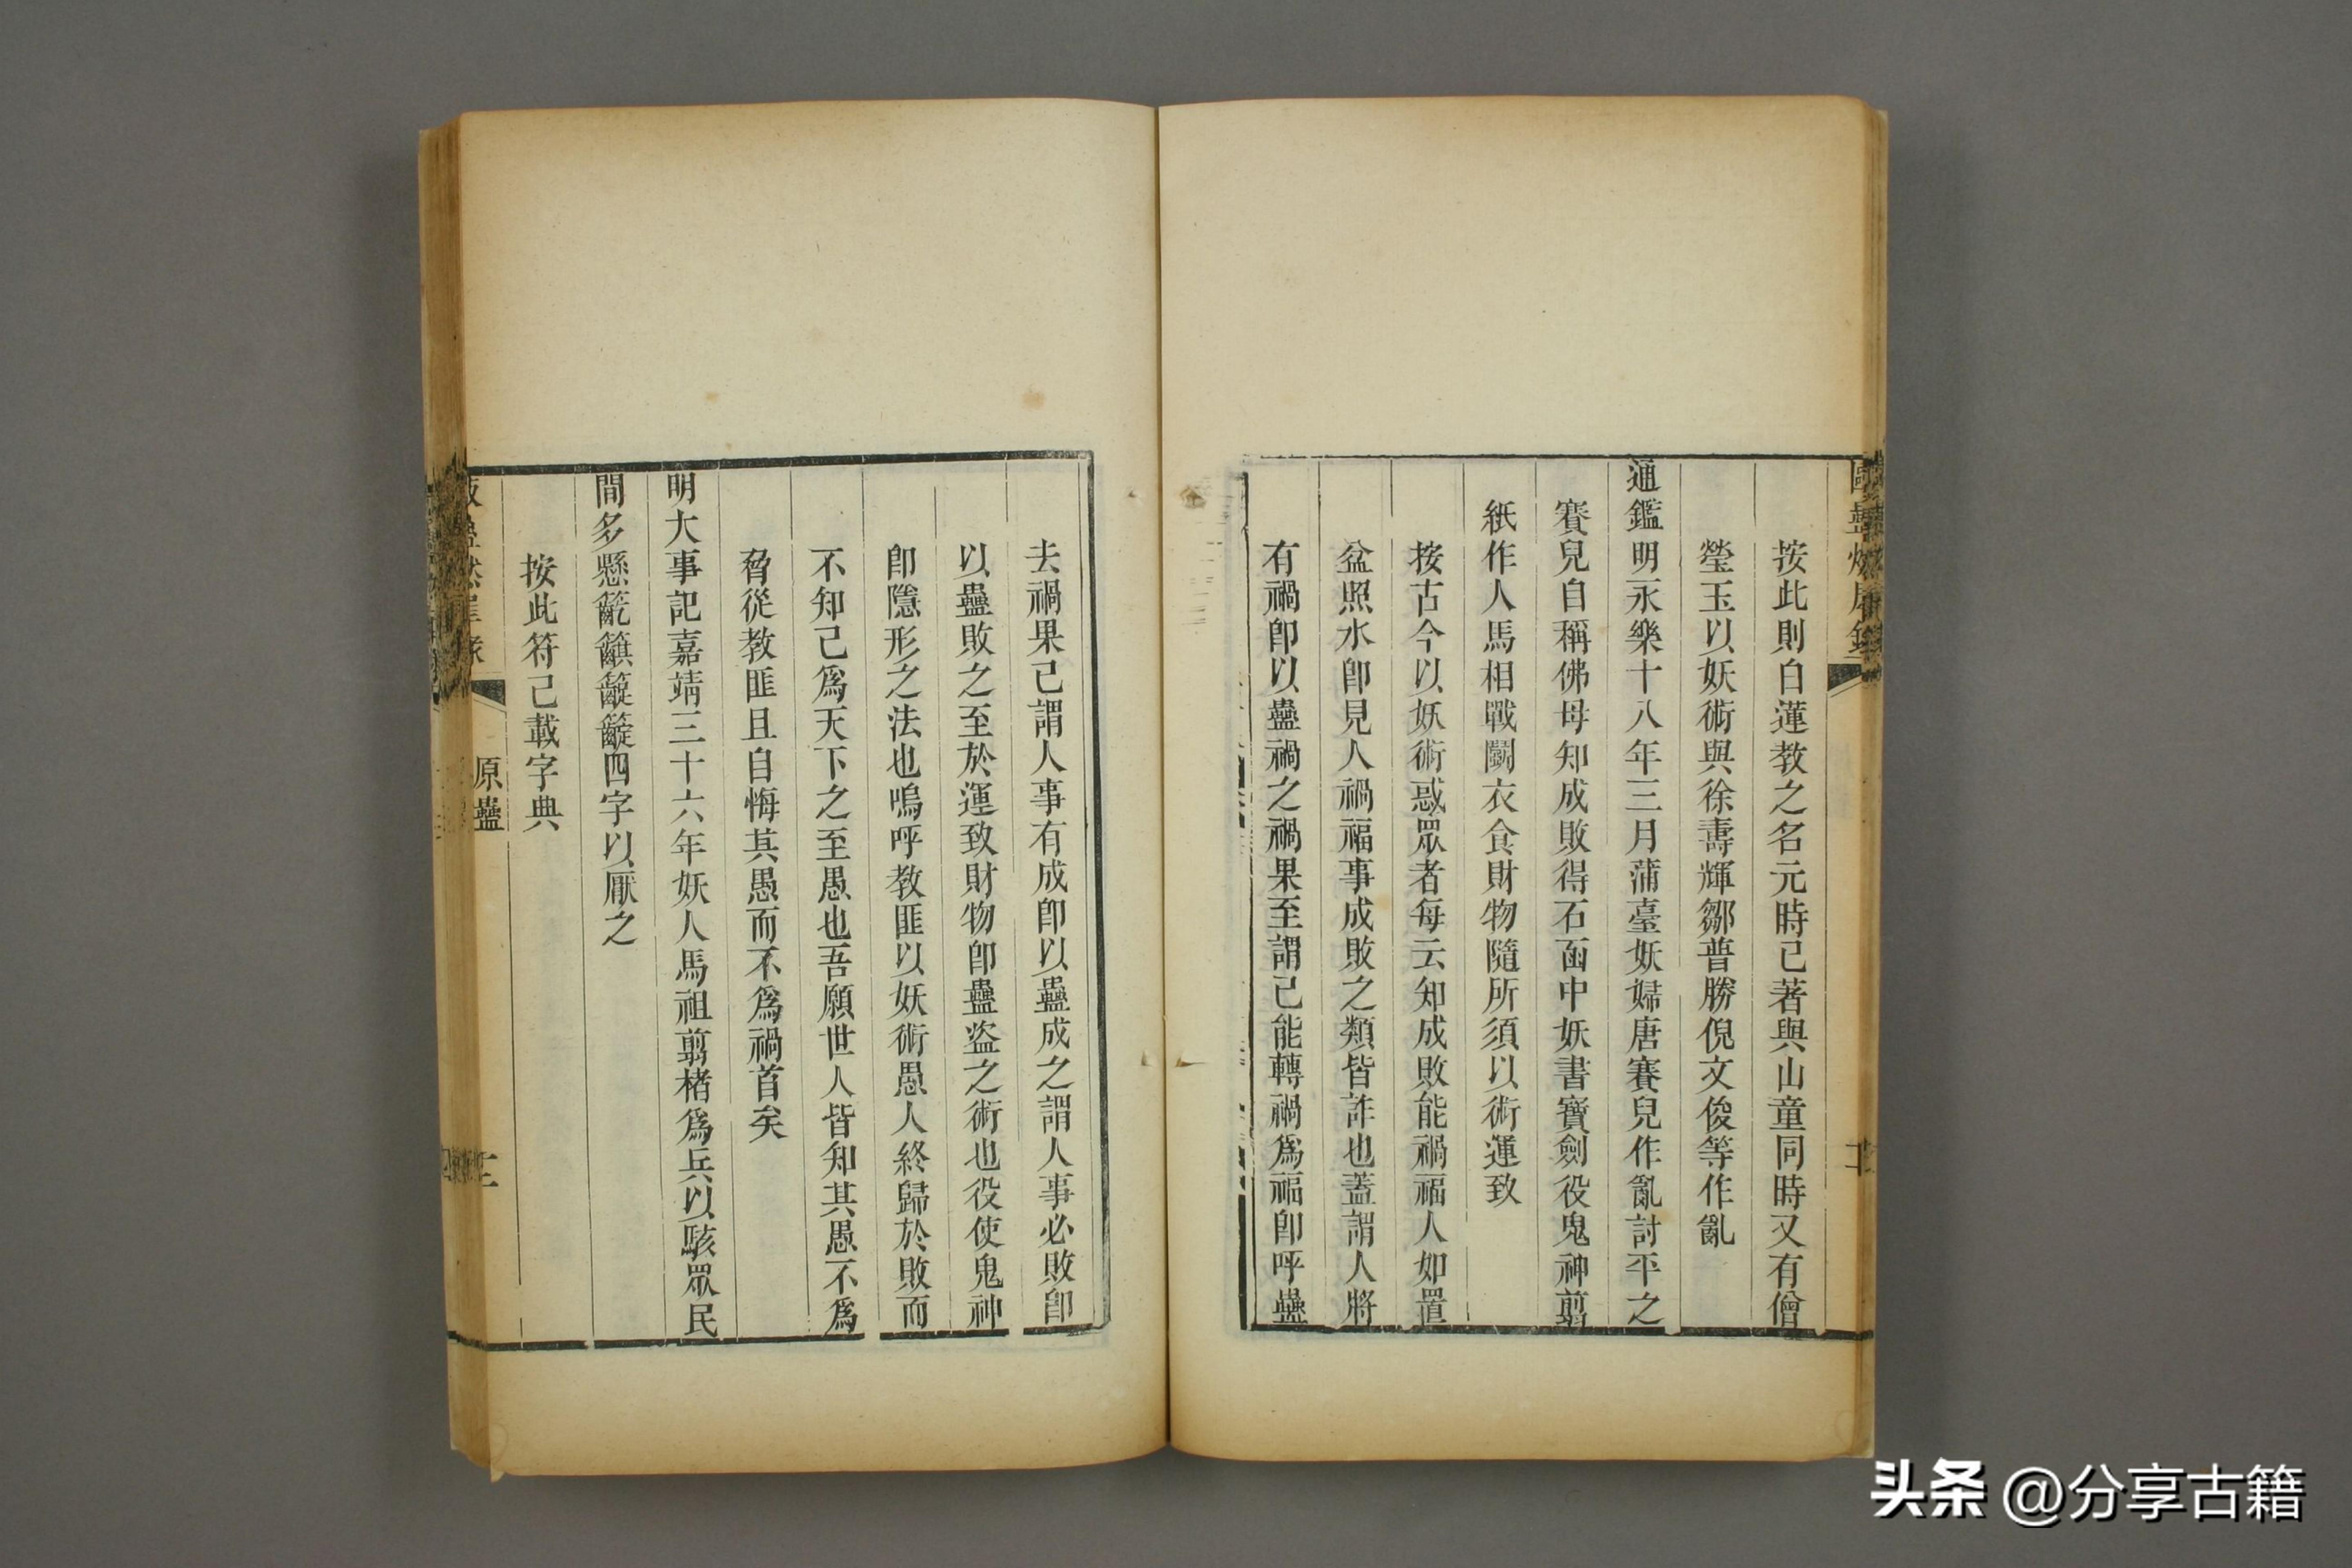 按此則白蓮教之名元時已著與山童同時又有僧
瑩玉以妖術與徐壽輝鄒普勝倪文俊等作亂
通鑑明永樂十八年三月蒲臺妖婦唐賽兒作亂討平之
賽兒自稱佛母知成敗得石函中妖書寶劍役鬼神剪
紙作人馬相戰鬬衣食財物隨所須以術運致
按古今以妖術惑眾者每云知成敗能禍福人如置
盆照水即見人禍福事成敗之類皆詐也蓋謂人將
有禍即以蠱禍之禍果至謂己能轉禍爲福即呼蠱
去禍果已謂人事有成即以蠱成之謂人事必敗即
以蠱敗之至於運致財物即蠱盜之術也役使鬼神
即隱形之法也嗚呼教匪以妖術愚人終歸於敗而
不知己爲天下之至愚也吾願世人皆知其愚不爲
脅從教匪且自悔其愚而不爲禍首矣
明大事記嘉靖三十六年妖人馬祖剪楮爲兵以駭眾民
間多懸四字以厭之
按此符已載字典
原蠱
头条 @分享古籍